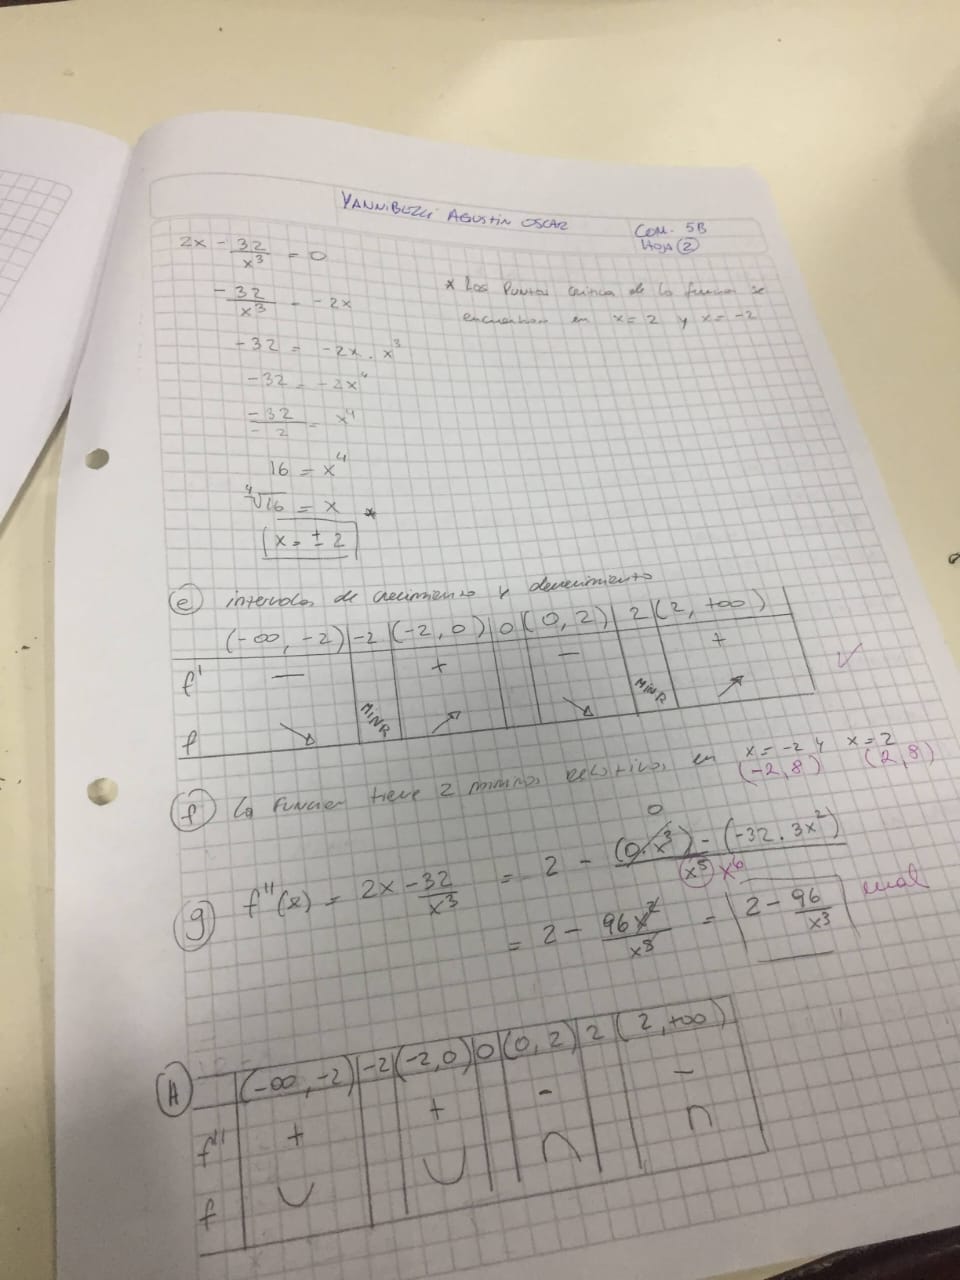 YANNIBELLI AGUSTIN OSCAR
COM. 5B
HOJA 2
2x - 32/x³ = 0
-32/x³ = -2x
-32 = -2x . x³
-32 = -2x⁴
-32/-2 = x⁴
16 = x⁴
⁴√16 = x *
x = ± 2
* Los Puntos critica de la funcion se
encuentran en x = 2 y x = -2
e intervalos de crecimiento y decrecimiento
(-∞, -2) | -2 | (-2, 0) | 0 | (0, 2) | 2 | (2, +∞)
f' — + — + ✓
f ↘ MIN R ↗ ↘ MIN R ↗
f La funcion tiene 2 minimos relativos en x = -2 y x = 2
(-2,8) (2,8)
g f''(x) = 2x - 32/x³ = 2 - (0.x³) - (-32.3x²)/x⁵ x⁶
0
= 2 - 96x²/x⁵ = 2 - 96/x³ mal
H (-∞, -2) | -2 | (-2, 0) | 0 | (0, 2) | 2 | (2, +∞)
f'' + + - -
f ∪ ∪ ∩ ∩